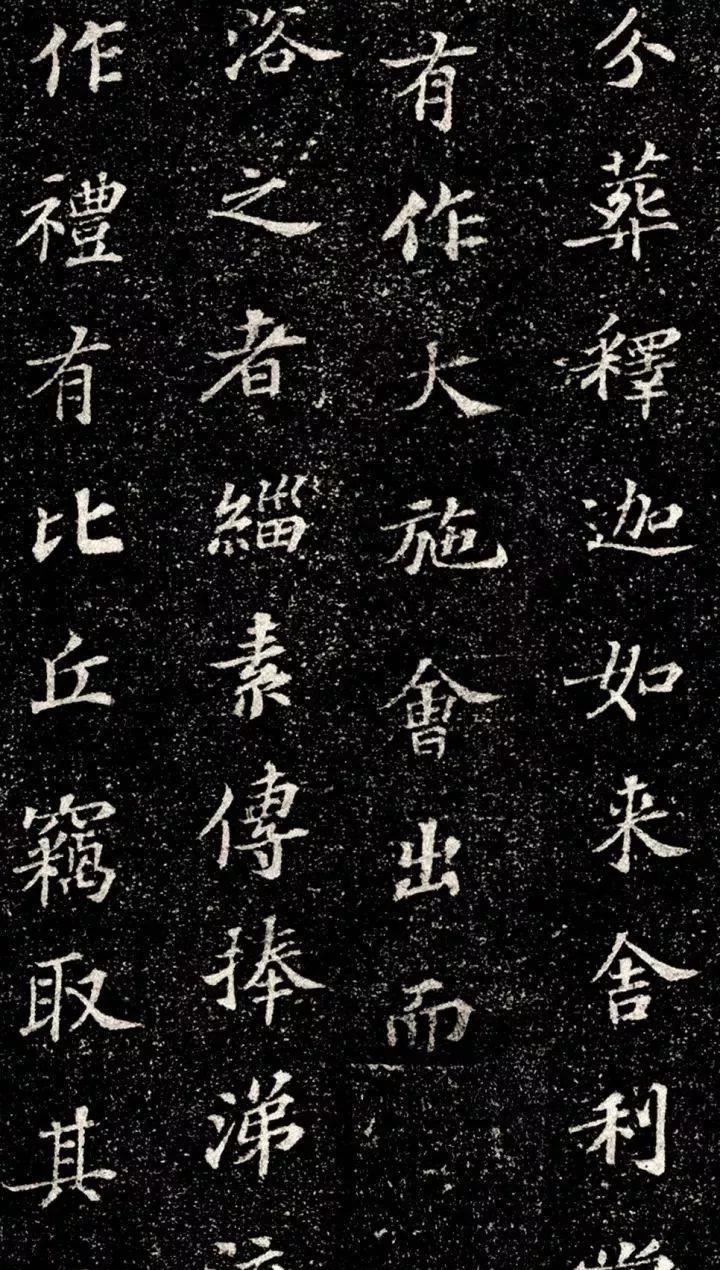 分葬釋迦如来舎利嘗
有作大施會出而
浴之者緇素傳捧涕泣
作禮有比丘竊取其